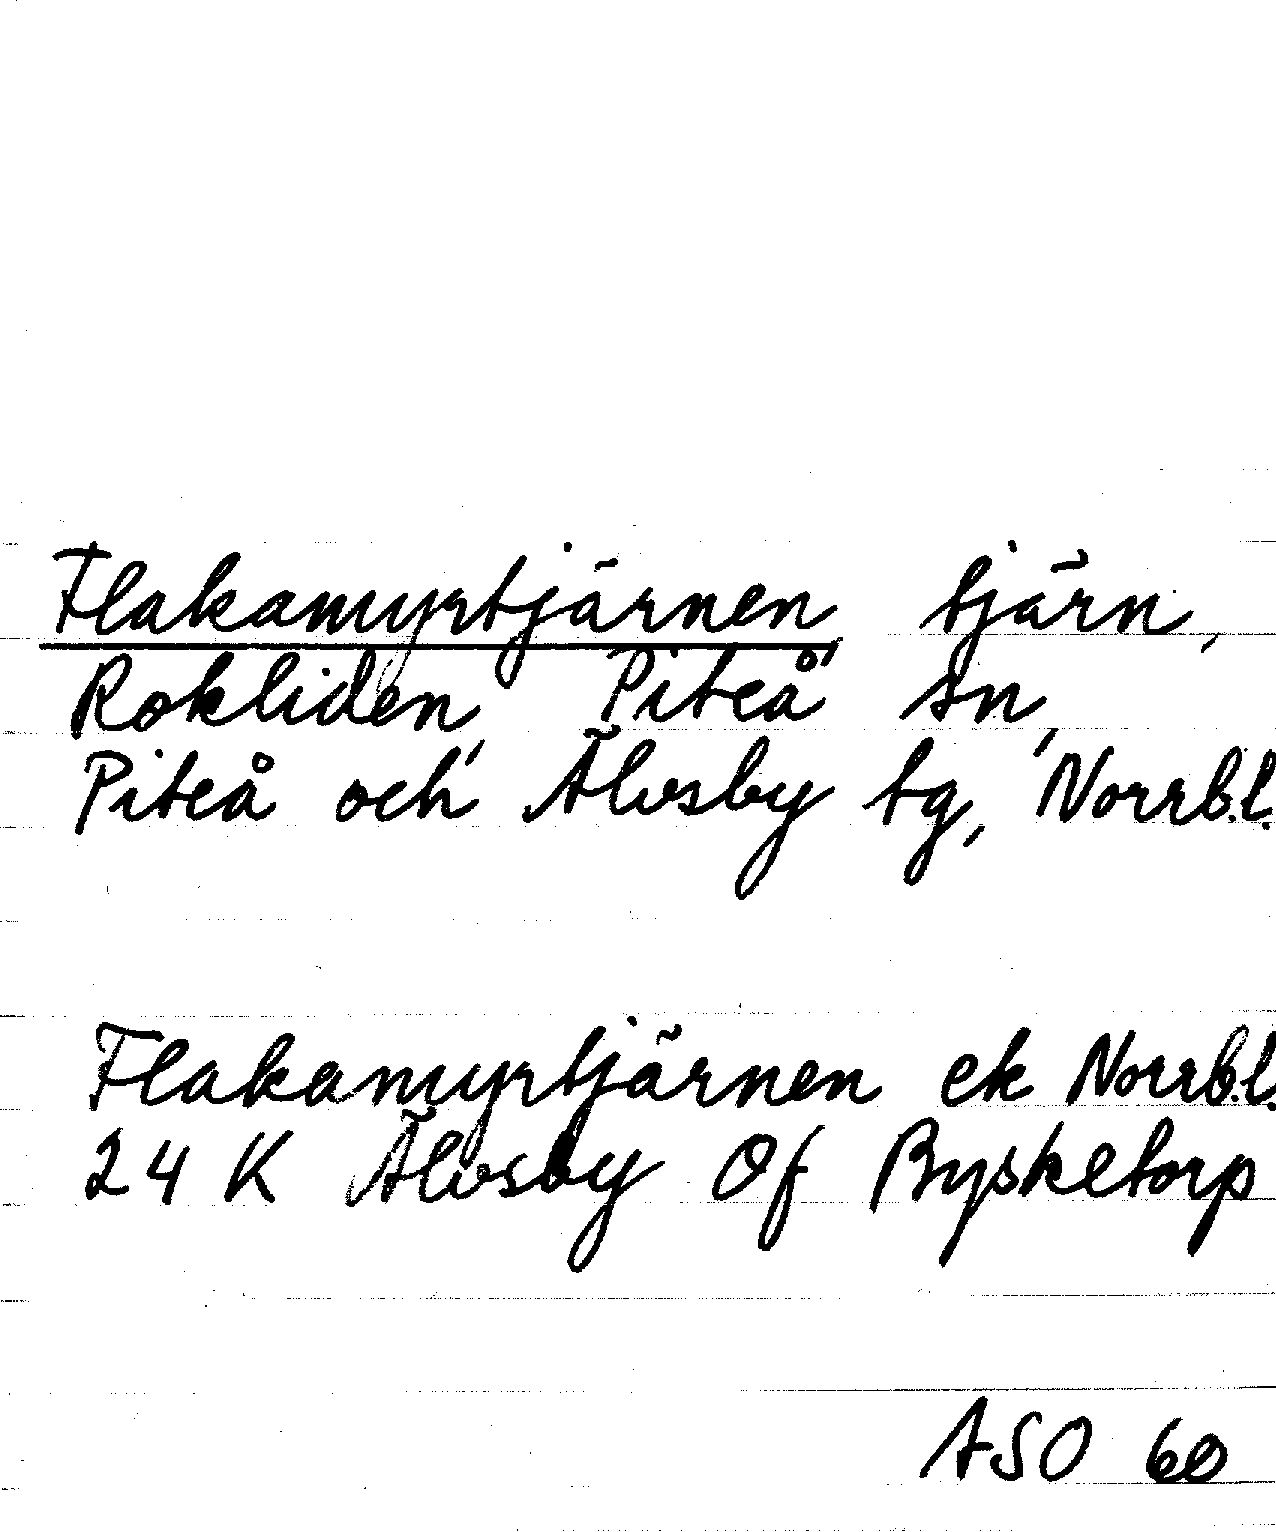 Flakamyrtjärnen, tjärn,
Rokliden, Piteå sn,
Piteå och Älvsby tg, Norrb.l.
Flakamyrtjärnen ek Norrb.l.
24 K Älvsby Of Bysketorp
ASO 60